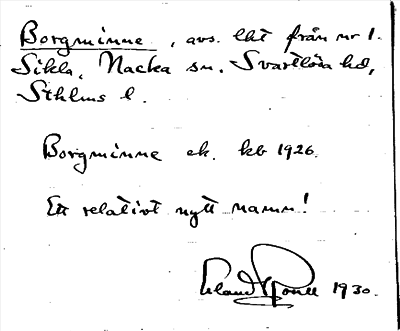 Borgminne, avs. lht från nr 1.
Sikla, Nacka sn. Svartlösa hd,
Sthlms l.
Borgminne ek. kb 1926.
Ett relativt nytt namn!
Erland Rosell 1930.